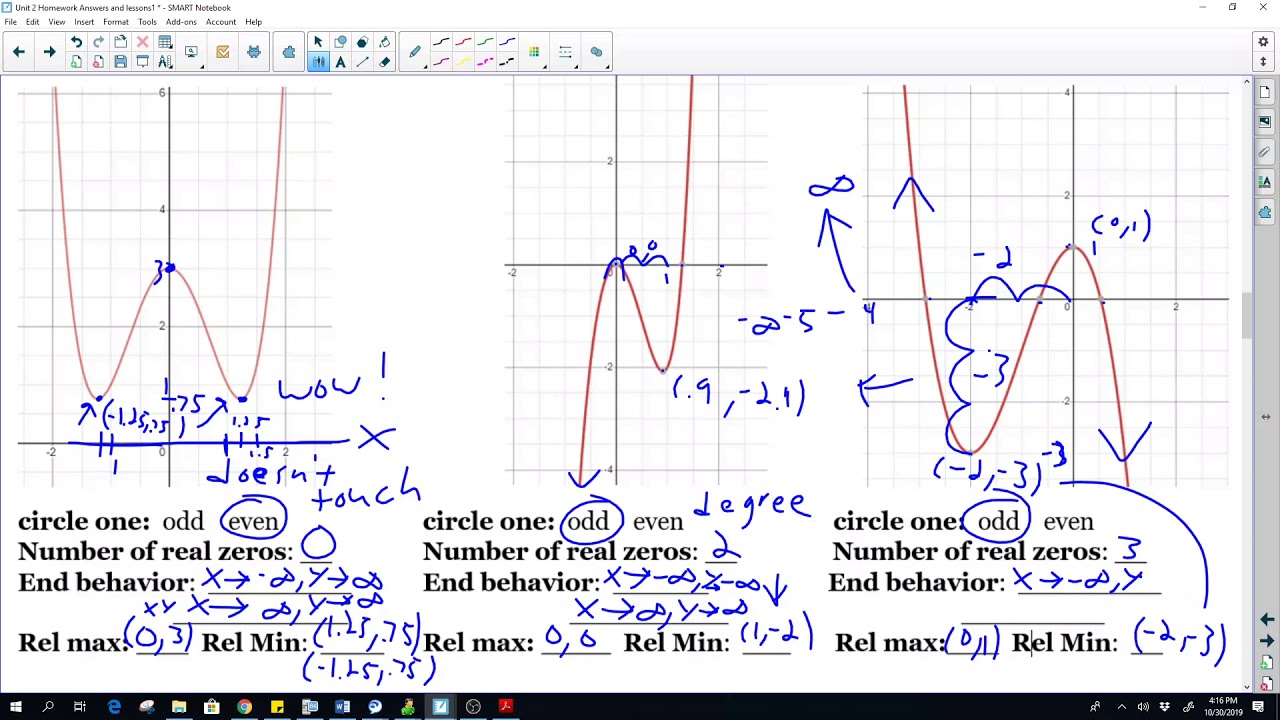 Unit 2 Homework Answers and lessons1 * - SMART Notebook
File Edit View Insert Format Tools Add-ons Account Help
6
4
2
-2
0
2
3
(-1.25,.75)
1
.75
1.25
1.5
1
X
wow!
doesn't
touch
2
-2
0
2
-2
-4
0,0
1
(.9, -2.1)
-∞ -5 -4
∞
4
2
-4
-2
0
2
-2
(0,1)
1
-2
-3
(-2,-3)
-3
degree
circle one: odd even
Number of real zeros: 0
End behavior: X→-∞, Y→∞
XY X→∞, Y→∞
Rel max: (0,3) Rel Min: (1.25,.75)
(-1.25,.75)
circle one: odd even
Number of real zeros: 2
End behavior: X→-∞, Y→-∞
X→∞, Y→∞
Rel max: 0,0 Rel Min: (1,-2)
circle one: odd even
Number of real zeros: 3
End behavior: X→-∞, Y
Rel max: (0,1) Rel Min: (-2,-3)
4:16 PM
10/30/2019